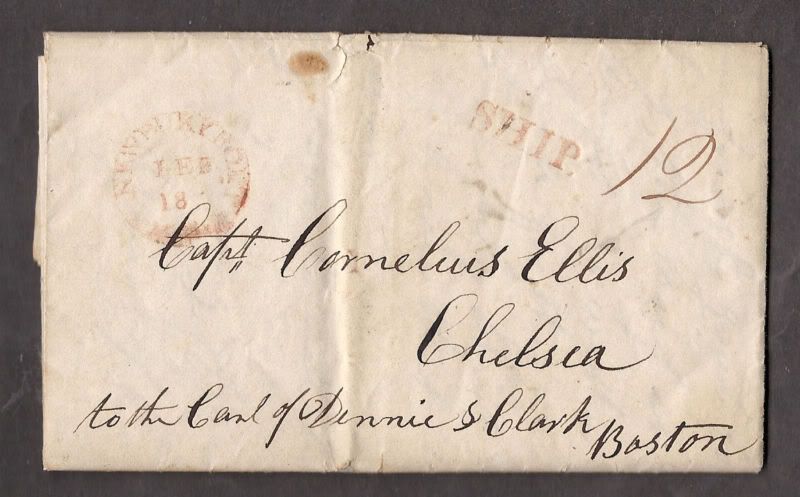 NEWBURYPORT
FEB
18
SHIP.
12
Capt. Cornelius Ellis
Chelsea
to the Care of Dennie & Clark
Boston